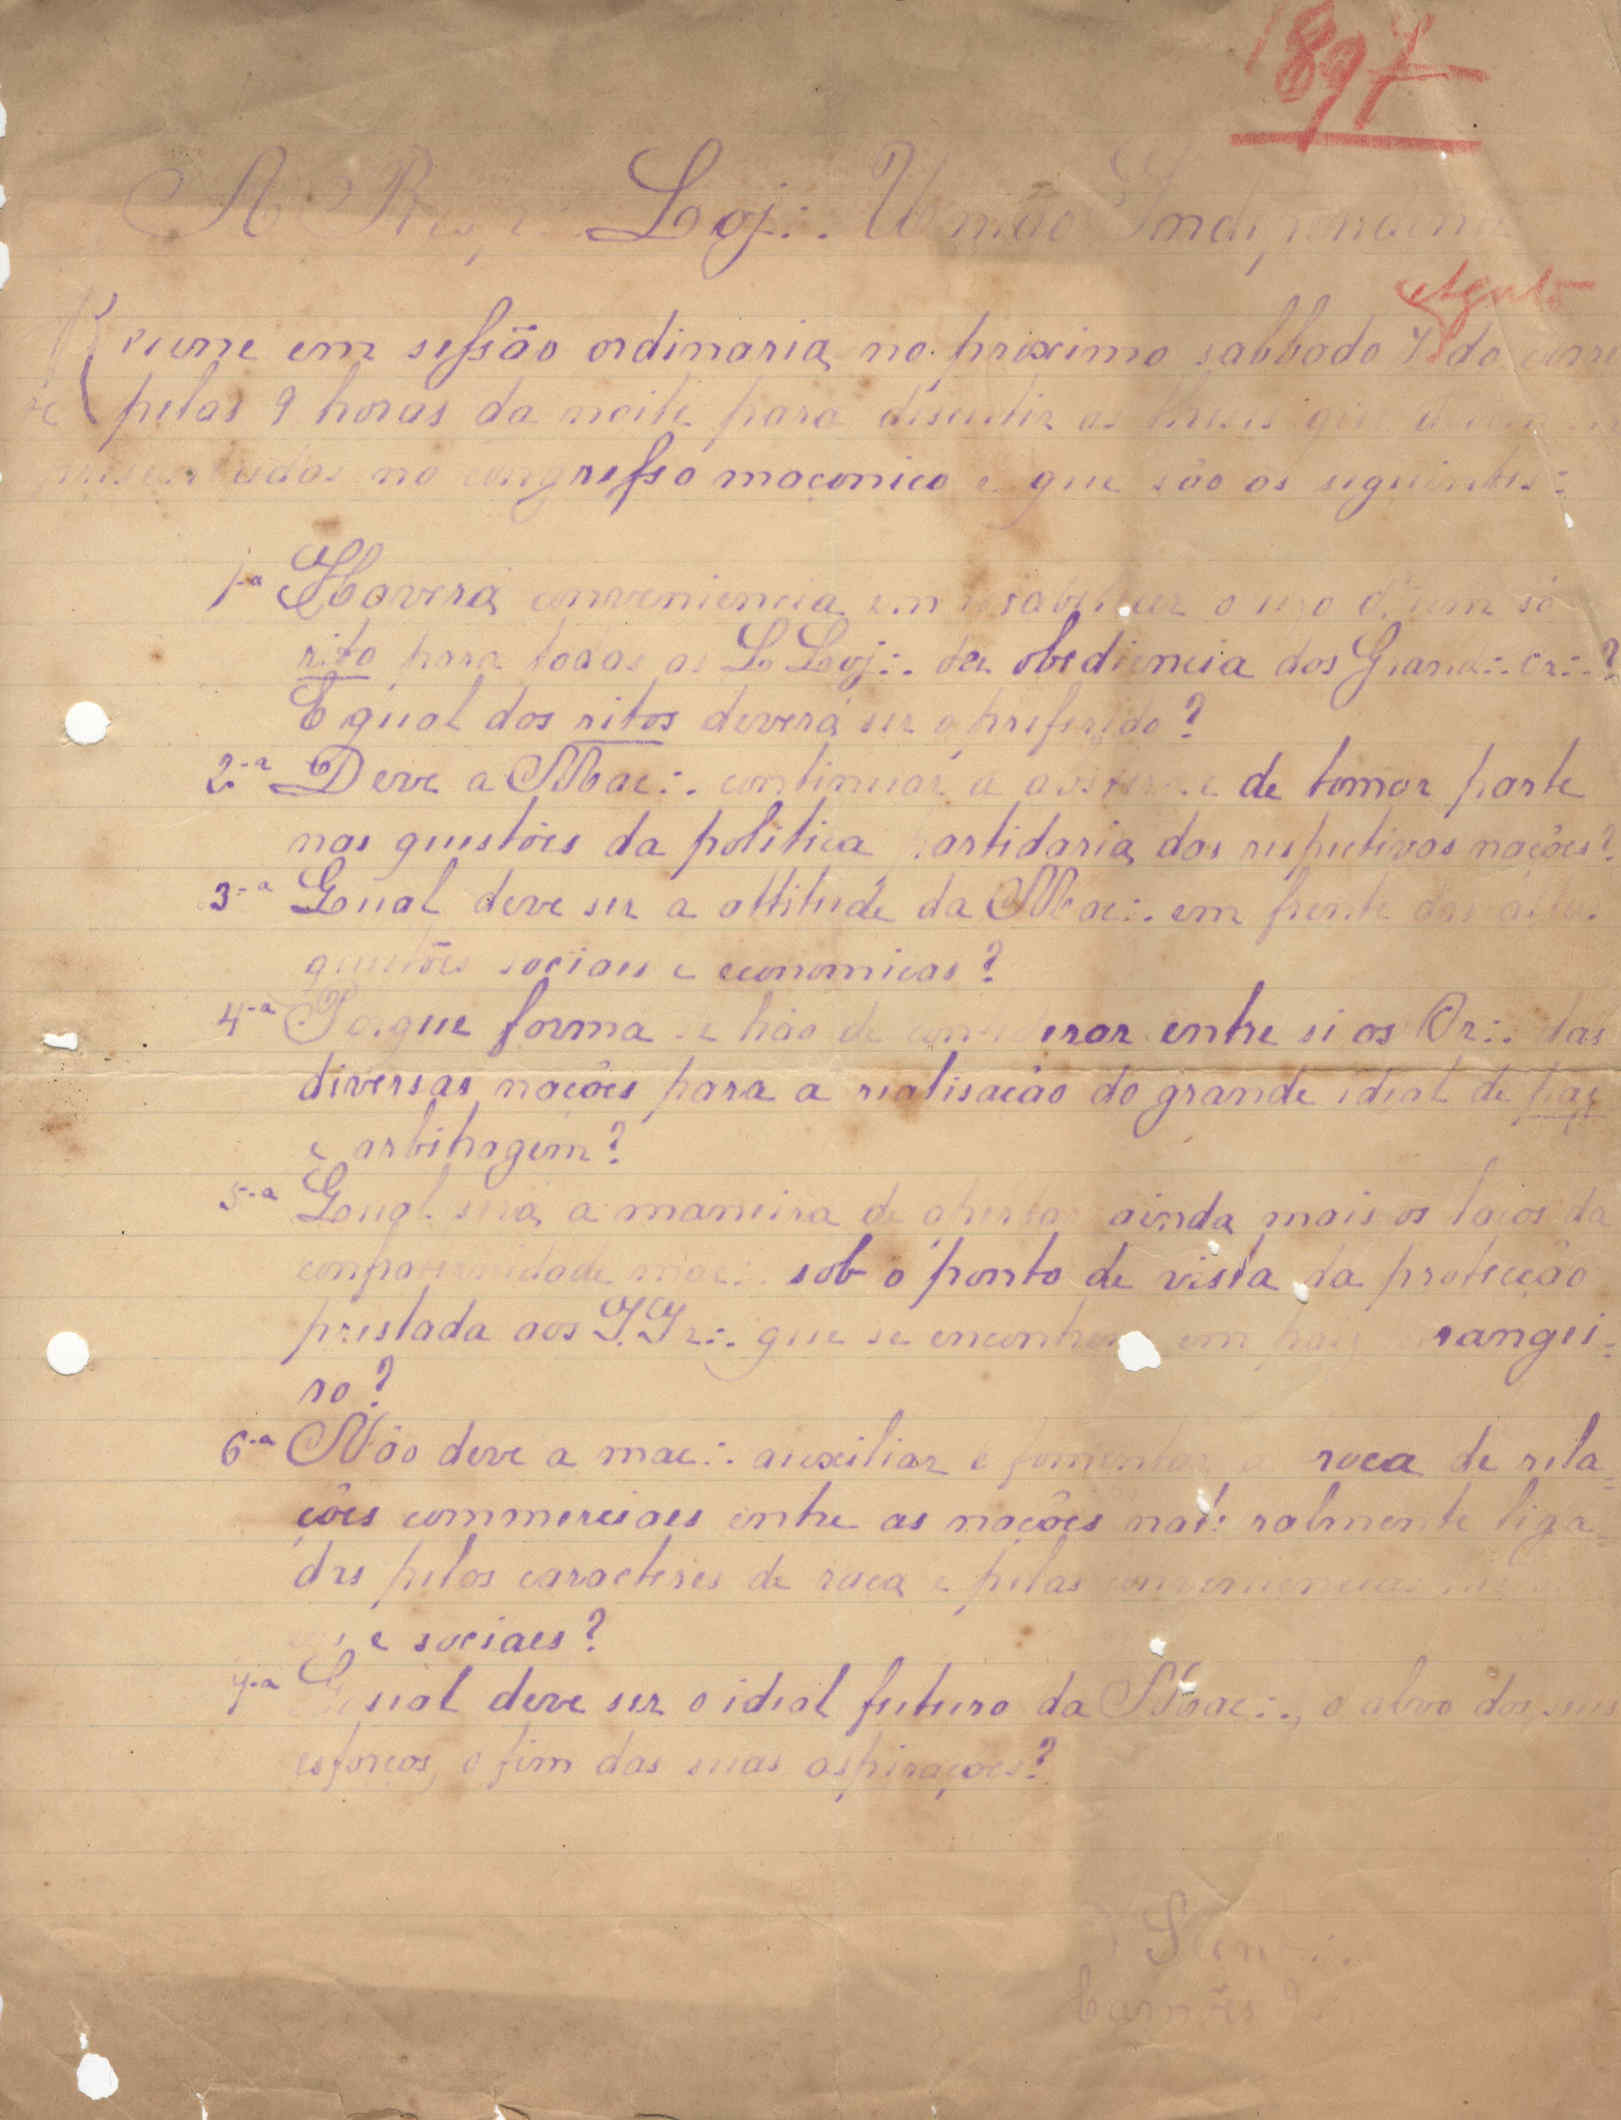 1897
A Resp∴ Loj∴ União Independ
Agosto
Reune em sessão ordinaria no proximo sabbado 7 do corre
te pelas 9 horas da noite para discutir as theses que
no congresso maçonico e que são as seguintes:
1.ª Haverá conveniencia em o uso d'um só
rito para todas as LLoj∴ da obediencia dos Grand∴ Or∴?
E qual dos ritos deverá ser o preferido?
2.ª Deve a Maç∴ continuar a abster-se de tomar parte
nas questões da politica partidaria das respectivas nações?
3.ª Qual deve ser a attitude da Maç∴ em frente das
questões sociaes e economicas?
4.ª Porque forma se hão de entre si os Or∴ das
diversas nações para a realisação do grande ideal de paz
e arbitragem?
5.ª Qual será a maneira de apertar ainda mais os laços da
confraternidade maç∴ sob o ponto de vista da protecção
prestada aos IIr∴ que se encontrem em paiz rangei-
ro?
6.ª Não deve a maç∴ auxiliar e fomentar a roca de rela-
ções commerciaes entre as nações naturalmente liga-
das pelos caracteres de raça e pelas conveniencias
e sociaes?
7.ª Qual deve ser o ideal futuro da Maç∴, o alvo dos seus
esforços, o fim das suas aspirações?
Camões